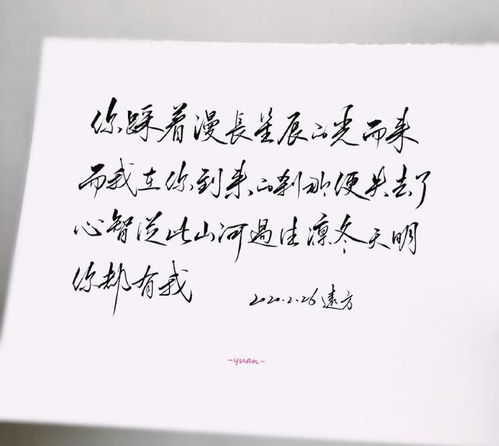 你踩着漫長星辰的光而来
而我在你到来的刹那便失去了
心智從此山河過往凛冬天明
你都有我
2020.2.26 遠方
-yuan-